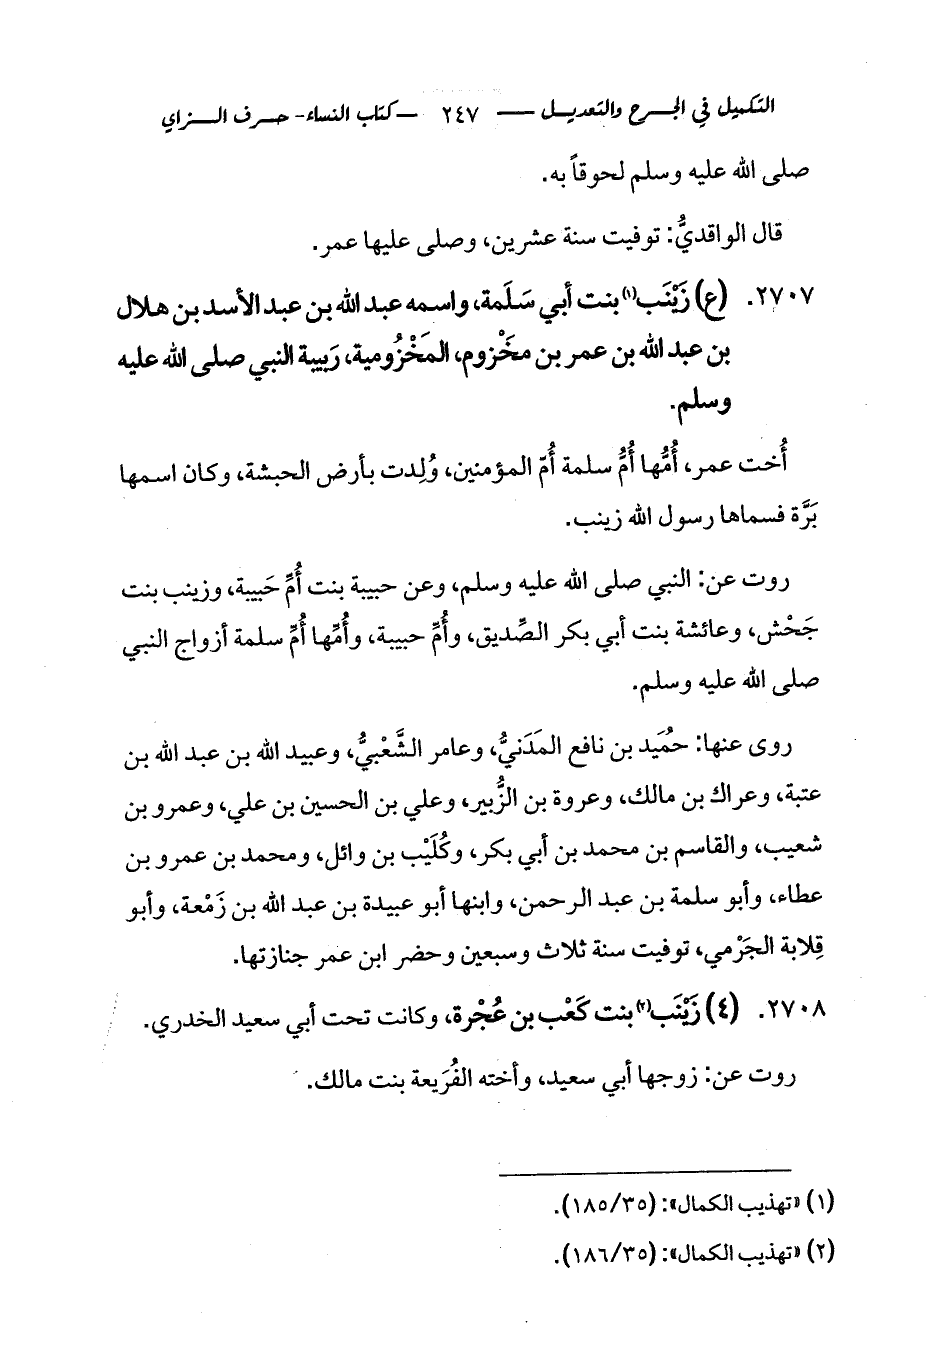 التكميل في الجرح والتعديل — ٢٤٧ — كتاب النساء - حرف الزاي
صلى الله عليه وسلم لحوقاً به.
قال الواقديُّ: توفيت سنة عشرين، وصلى عليها عمر.
٢٧٠٧. (ع) زَيْنَب(١) بنت أبي سَلَمة، واسمه عبد الله بن عبد الأسد بن هلال
بن عبد الله بن عمر بن مخَزْوم، المَخْزُومية، رَبيبة النبي صلى الله عليه
وسلم.
أُخت عمر، أُمُّها أُمُّ سلمة أُمّ المؤمنين، وُلِدت بأرض الحبشة، وكان اسمها
بَرَّة فسماها رسول الله زينب.
روت عن: النبي صلى الله عليه وسلم، وعن حبيبة بنت أُمِّ حَبيبة، وزينب بنت
جَحْش، وعائشة بنت أبي بكر الصِّديق، وأُمِّ حبيبة، وأُمِّها أُمِّ سلمة أزواج النبي
صلى الله عليه وسلم.
روى عنها: حمُيَد بن نافع المَدَنيُّ، وعامر الشَّعْبيُّ، وعبيد الله بن عبد الله بن
عتبة، وعراك بن مالك، وعروة بن الزُّبير، وعلي بن الحسين بن علي، وعمرو بن
شعيب، والقاسم بن محمد بن أبي بكر، وكُلَيْب بن وائل، ومحمد بن عمرو بن
عطاء، وأبو سلمة بن عبد الرحمن، وابنها أبو عبيدة بن عبد الله بن زَمْعة، وأبو
قِلابة الجَرْمي، توفيت سنة ثلاث وسبعين وحضر ابن عمر جنازتها.
٢٧٠٨. (٤) زَيْنَب(٢) بنت كَعْب بن عُجْرة، وكانت تحت أبي سعيد الخدري.
روت عن: زوجها أبي سعيد، وأخته الفُرَيعة بنت مالك.
(١) «تهذيب الكمال»: (٣٥/ ١٨٥).
(٢) «تهذيب الكمال»: (٣٥/ ١٨٦).